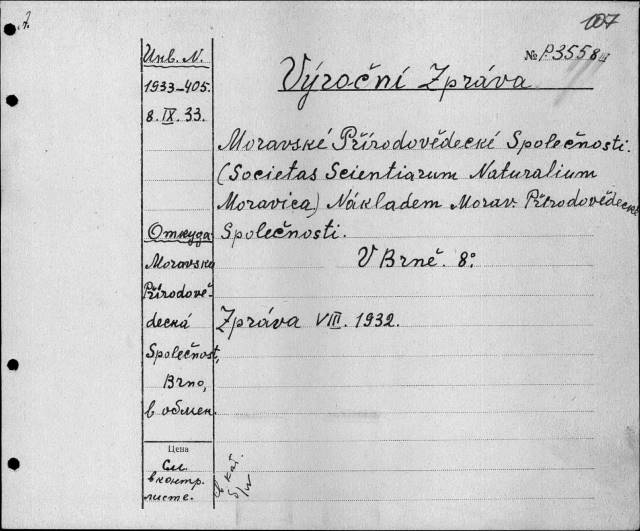 107
№ P3558
Výroční Zpráva
Moravské Přírodovědecké Společnosti.
(Societas Scientiarum Naturalium
Moravica.) Nákladem Morav. Přírodovědecké
Společnosti.
V Brně. 8º
Zpráva VIII. 1932.
Инв. N.
1933–405.
8. IX. 33.
Откуда
Moravska
Přírodově-
decká
Společnost,
Brno,
в обмен.
Цена
См
в контр.
листе.
кат.